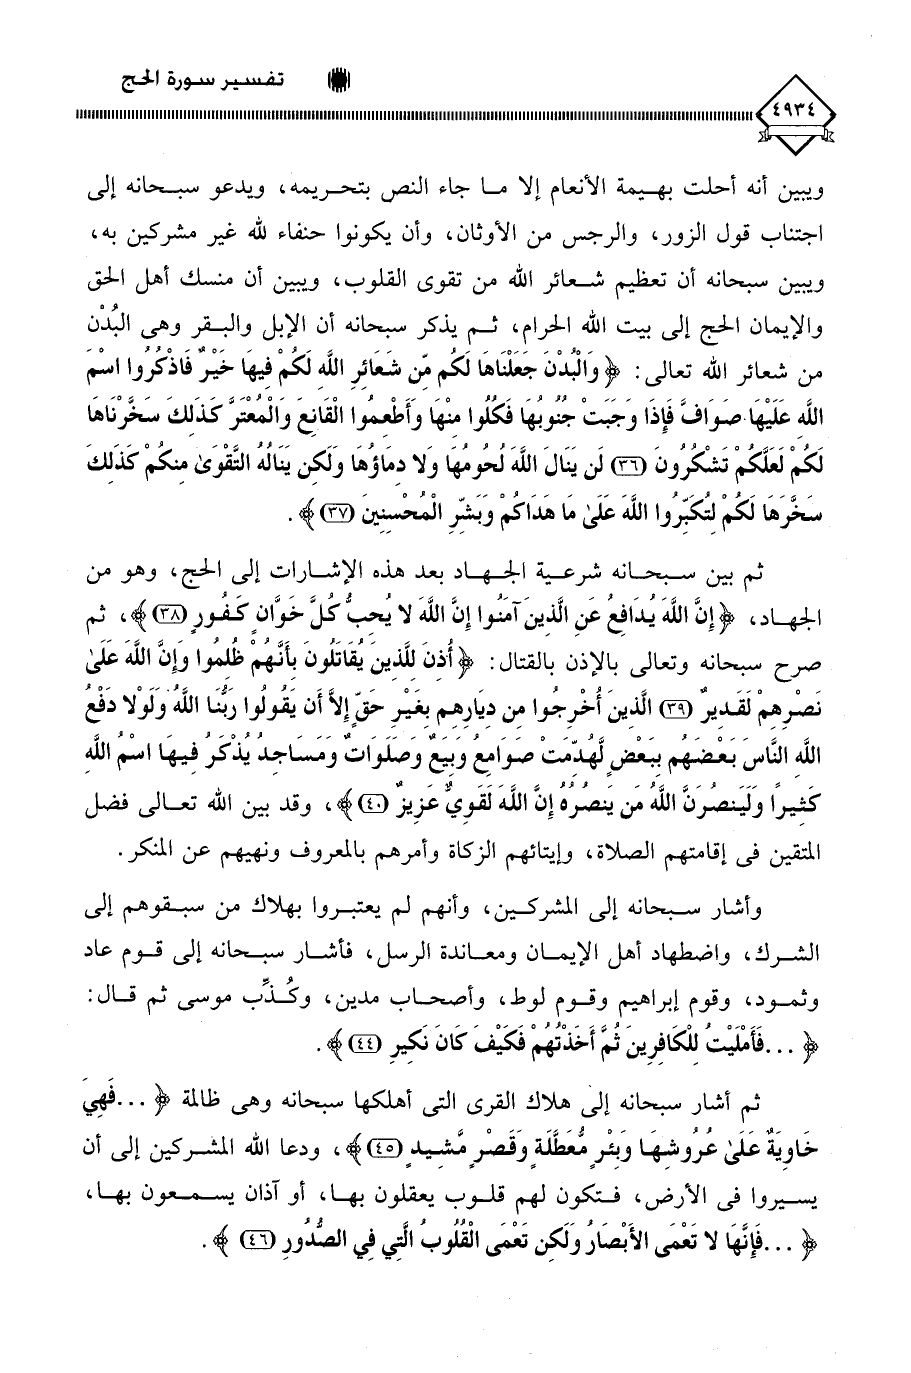 تفسير سورة الحج
٤٩٣٤
ويبين أنه أحلت بهيمة الأنعام إلا ما جاء النص بتحريمه، ويدعو سبحانه إلى
اجتناب قول الزور، والرجس من الأوثان، وأن يكونوا حنفاء لله غير مشركين به،
ويبين سبحانه أن تعظيم شعائر الله من تقوى القلوب، ويبين أن منسك أهل الحق
والإيمان الحج إلى بيت الله الحرام، ثم يذكر سبحانه أن الإبل والبقر وهى البُدْن
من شعائر الله تعالى: ﴿ وَالْبُدْنَ جَعَلْنَاهَا لَكُم مِّن شَعَائِرِ اللَّهِ لَكُمْ فِيهَا خَيْرٌ فَاذْكُرُوا اسْمَ
اللَّهِ عَلَيْهَا صَوَافَّ فَإِذَا وَجَبَتْ جُنُوبُهَا فَكُلُوا مِنْهَا وَأَطْعِمُوا الْقَانِعَ وَالْمُعْتَرَّ كَذَلِكَ سَخَّرْنَاهَا
لَكُمْ لَعَلَّكُمْ تَشْكُرُونَ (٣٦) لَن يَنَالَ اللَّهَ لُحُومُهَا وَلا دِمَاؤُهَا وَلَكِن يَنَالُهُ التَّقْوَىٰ مِنكُمْ كَذَلِكَ
سَخَّرَهَا لَكُمْ لِتُكَبِّرُوا اللَّهَ عَلَىٰ مَا هَدَاكُمْ وَبَشِّرِ الْمُحْسِنِينَ (٣٧) ﴾.
ثم بين سبحانه شرعية الجهاد بعد هذه الإشارات إلى الحج، وهو من
الجهاد، ﴿ إِنَّ اللَّهَ يُدَافِعُ عَنِ الَّذِينَ آمَنُوا إِنَّ اللَّهَ لا يُحِبُّ كُلَّ خَوَّانٍ كَفُورٍ (٣٨) ﴾، ثم
صرح سبحانه وتعالى بالإذن بالقتال: ﴿ أُذِنَ لِلَّذِينَ يُقَاتَلُونَ بِأَنَّهُمْ ظُلِمُوا وَإِنَّ اللَّهَ عَلَىٰ
نَصْرِهِمْ لَقَدِيرٌ (٣٩) الَّذِينَ أُخْرِجُوا مِن دِيَارِهِم بِغَيْرِ حَقٍّ إِلاَّ أَن يَقُولُوا رَبُّنَا اللَّهُ وَلَوْلا دَفْعُ
اللَّهِ النَّاسَ بَعْضَهُم بِبَعْضٍ لَّهُدِّمَتْ صَوَامِعُ وَبِيَعٌ وَصَلَوَاتٌ وَمَسَاجِدُ يُذْكَرُ فِيهَا اسْمُ اللَّهِ
كَثِيرًا وَلَيَنصُرَنَّ اللَّهُ مَن يَنصُرُهُ إِنَّ اللَّهَ لَقَوِيٌّ عَزِيزٌ (٤٠) ﴾، وقد بين الله تعالى فضل
المتقين فى إقامتهم الصلاة، وإيتائهم الزكاة وأمرهم بالمعروف ونهيهم عن المنكر.
وأشار سبحانه إلى المشركين، وأنهم لم يعتبروا بهلاك من سبقوهم إلى
الشرك، واضطهاد أهل الإيمان ومعاندة الرسل، فأشار سبحانه إلى قوم عاد
وثمود، وقوم إبراهيم وقوم لوط، وأصحاب مدين، وكُذِّب موسى ثم قال:
﴿ ... فَأَمْلَيْتُ لِلْكَافِرِينَ ثُمَّ أَخَذْتُهُمْ فَكَيْفَ كَانَ نَكِيرِ (٤٤) ﴾.
ثم أشار سبحانه إلى هلاك القرى التى أهلكها سبحانه وهى ظالمة ﴿ ... فَهِيَ
خَاوِيَةٌ عَلَىٰ عُرُوشِهَا وَبِئْرٍ مُّعَطَّلَةٍ وَقَصْرٍ مَّشِيدٍ (٤٥) ﴾، ودعا الله المشركين إلى أن
يسيروا فى الأرض، فتكون لهم قلوب يعقلون بها، أو آذان يسمعون بها،
﴿ ... فَإِنَّهَا لا تَعْمَى الأَبْصَارُ وَلَكِن تَعْمَى الْقُلُوبُ الَّتِي فِي الصُّدُورِ (٤٦) ﴾.